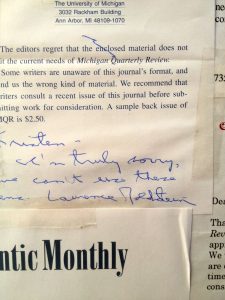 The University of Michigan
3032 Rackham Building
Ann Arbor, MI 48109-1070
The editors regret that the enclosed material does not
fit the current needs of Michigan Quarterly Review.
Some writers are unaware of this journal's format, and
send us the wrong kind of material. We recommend that
writers consult a recent issue of this journal before sub-
mitting work for consideration. A sample back issue of
MQR is $2.50.
I'm truly sorry,
we can't use these
Laurence Goldstein
ntic Monthly
73
De
Tha
Rev
app
We
are
time
cons